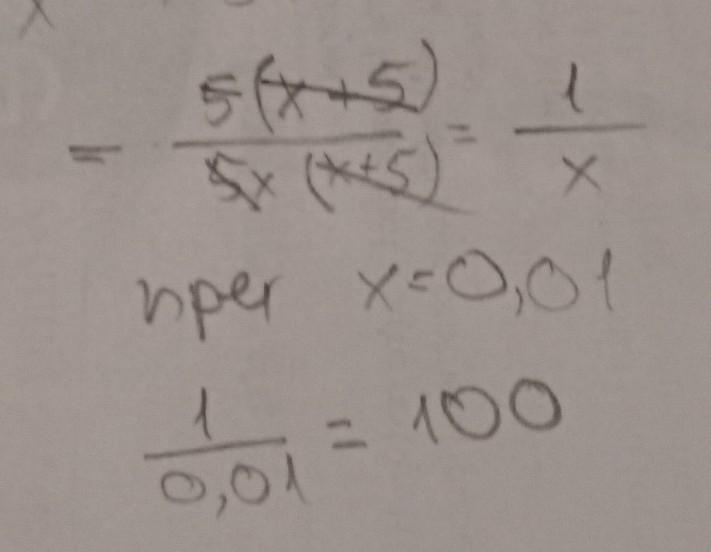 = 5(x+5) / 5x(x+5) = 1/x
при x=0,01
1/0,01 = 100